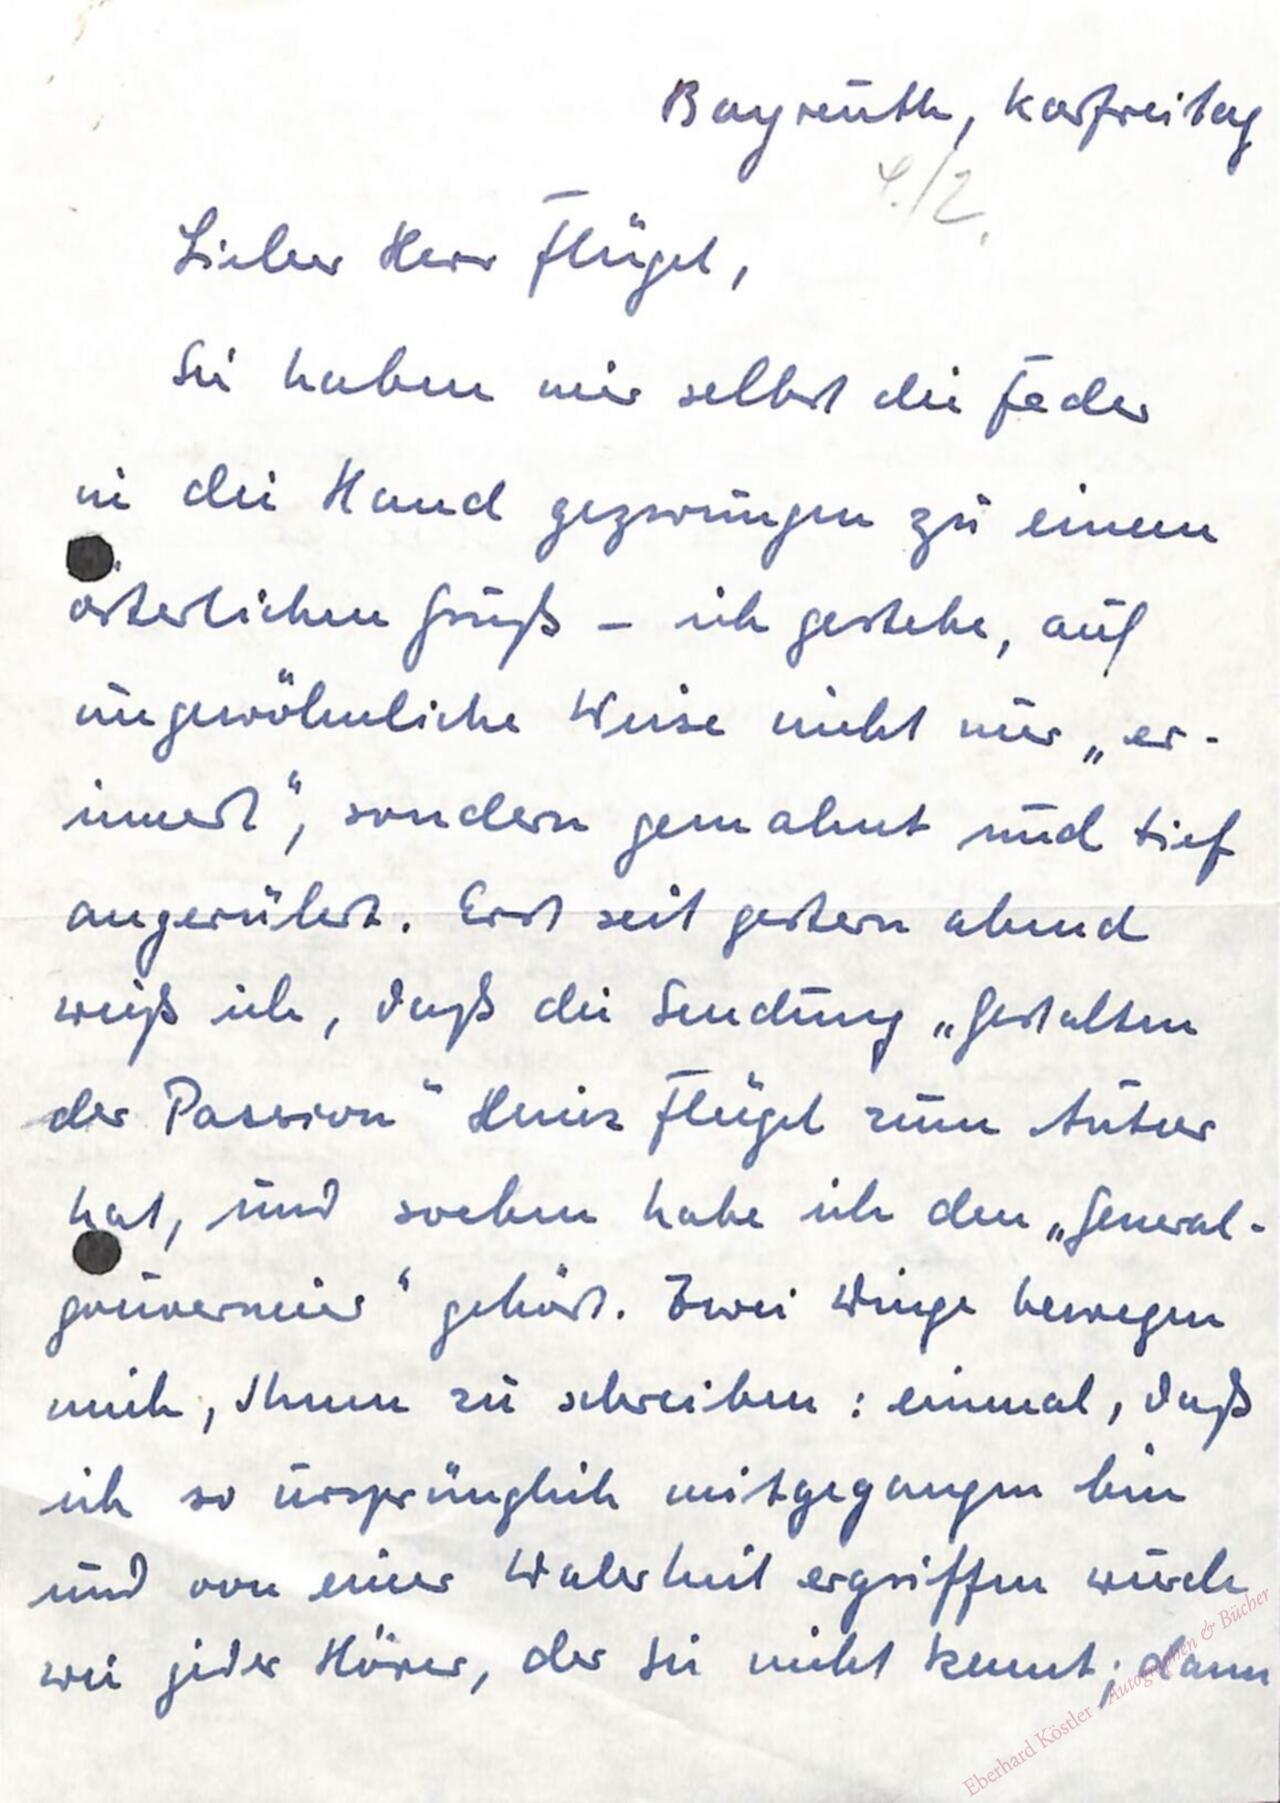 Bayreuth, Karfreitag
4./2.
Lieber Herr Flügel,
Sie haben mir selbst die Feder
in die Hand gezwungen zu einem
österlichen Gruß – ich gestehe, auf
ungewöhnliche Weise nicht nur „er-
innert“, sondern gemahnt und tief
angerührt. Erst seit gestern abend
weiß ich, daß die Sendung „Gestalten
der Passion“ Heinz Flügel zum Autor
hat, und soeben habe ich den „General-
gouverneur“ gehört. Zwei Dinge bewegen
mich, Ihnen zu schreiben: einmal, daß
ich so ursprünglich mitgegangen bin
und von einer Wahrheit ergriffen wurde
wie jeder Hörer, der Sie nicht kennt; dann
Eberhard Köstler Autographen & Bücher